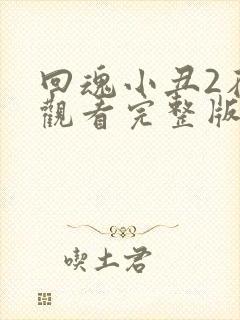 回魂小丑2
觀看完整版
喫土君